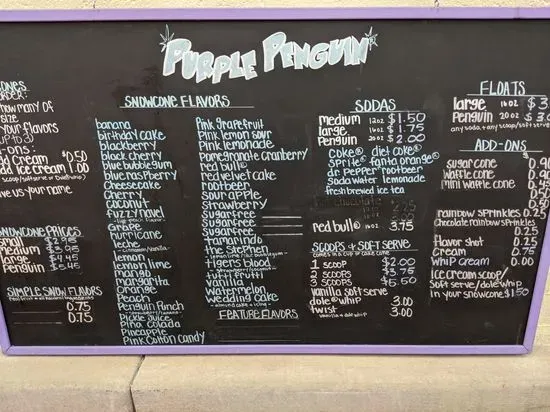 PURPLE PENGUIN
how many of
size
your flavors
add cream $0.50
add ice cream 1.00
give us your name
SNOWCONE PRICES
small $2.95
medium $3.95
large $4.45
Penguin $5.45
SIMPLE SNOW FLAVORS
0.75
0.75
SNOWCONE FLAVORS
banana
birthday cake
blackberry
black cherry
blue bubblegum
blue raspberry
Cheesecake
Cherry
coconut
fuzzy navel
Grape
hurricane
leche
lemon
lemon lime
mango
margarita
Orange
Peach
Penguin Punch
Pickle Juice
Piña Colada
Pineapple
Pink Cotton Candy
Pink Grapefruit
Pink lemon sour
Pink lemonade
Pomegranate cranberry
red bull®
red velvet cake
rootbeer
sour apple
strawberry
sugarfree
sugarfree
sugarfree
tamarindo
the Stephen
tigers blood
tutti frutti
vanilla
watermelon
wedding cake
almond cake + icing
FEATURE FLAVORS
SODAS
medium 12 oz $1.50
large 16 oz $1.75
Penguin 20 oz $2.00
Coke® diet coke®
sprite® fanta orange®
dr pepper® rootbeer
Soda water lemonade
fresh brewed ice tea
red bull® 3.75
SCOOPS + SOFT SERVE
comes in a cup or cake cone
1 scoop $2.00
2 scoops $3.75
3 scoops $5.50
vanilla soft serve
dole® whip 3.00
twist 3.00
vanilla + dole whip
FLOATS
large 16 oz
Penguin 20 oz
any soda + any scoop/soft serve
ADD-ONS
sugar cone
waffle cone
mini waffle cone
rainbow sprinkles 0.25
chocolate rainbow sprinkles 0.25
flavor shot 0.25
Cream 0.75
whip cream 0.00
ice cream scoop/
soft serve/dole whip
in your snowcone $1.50